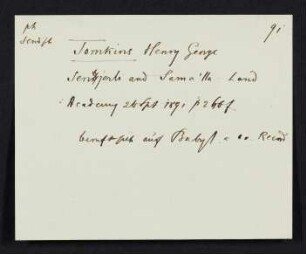 ph 91
Sendsch
Tomkins Henry George
Sendjerli and Sama'lla Land
Academy 26 Spt 1891 p 266f.
beruft sich auf Babyl. a. or. Record